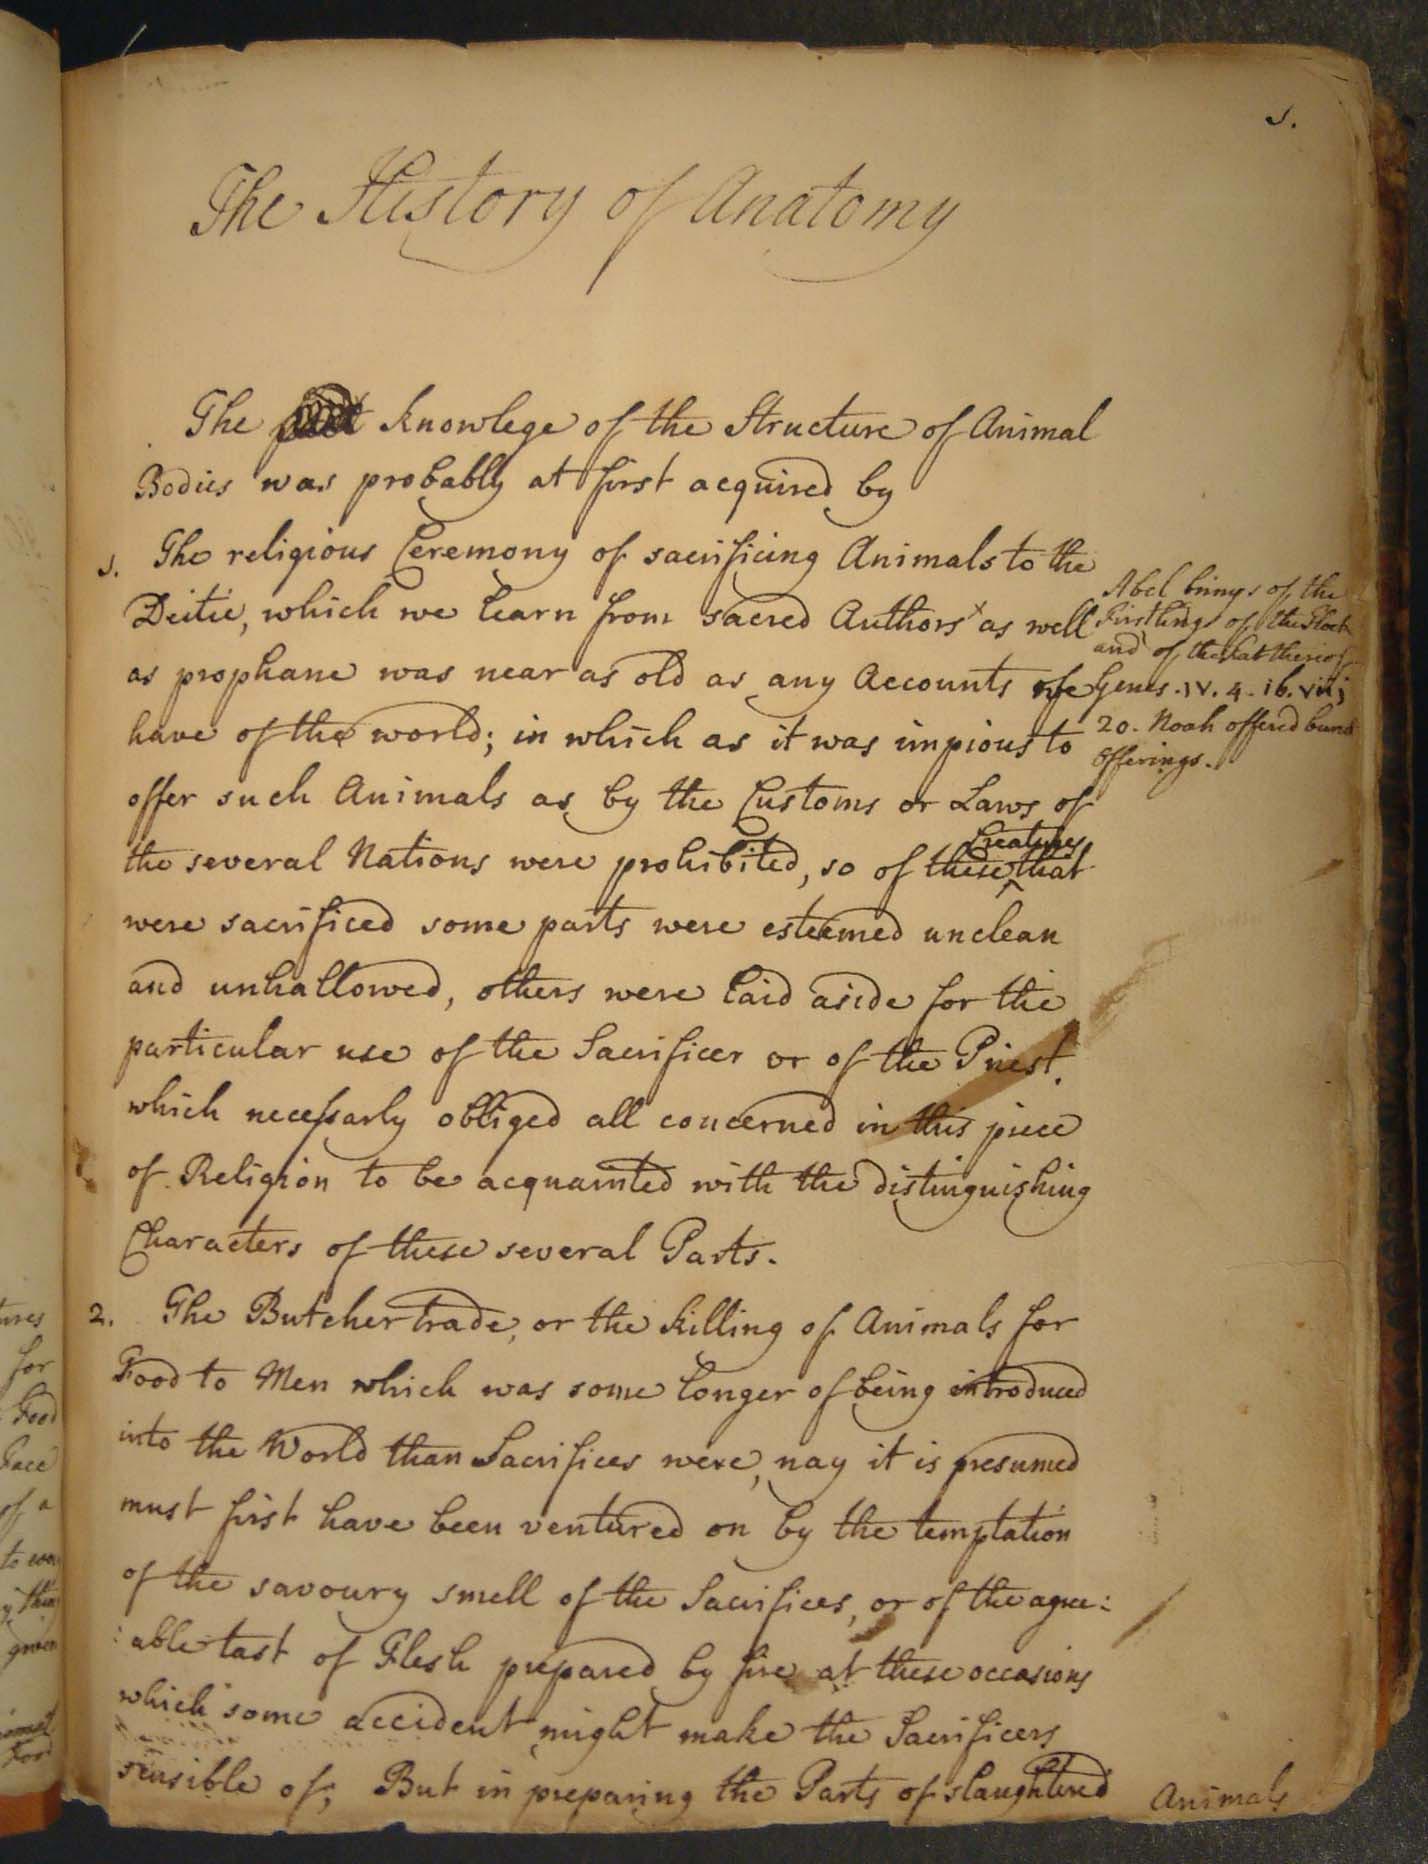 1.
The History of Anatomy
The knowlege of the Structure of Animal
Bodies was probably at first acquired by
1. The religious Ceremony of sacrificing Animals to the
Deitie, which we learn from sacred Authors x as well
as prophane was near as old as any Accounts we
have of the world; in which as it was impious to
offer such Animals as by the Customs or Laws of
the several Nations were prohibited, so of these Creatures that
were sacrificed some parts were esteemed unclean
and unhallowed, others were laid aside for the
particular use of the Sacrificer or of the Priest.
which necessarly obliged all concerned in this piece
of Religion to be acquainted with the distinguishing
Characters of these several Parts.
2. The Butcher trade, or the killing of Animals for
Food to Men which was some longer of being introduced
into the World than Sacrifices were, nay it is presumed
must first have been ventured on by the temptation
of the savoury smell of the Sacrifices, or of the agree:
:able tast of Flesh prepared by fire at these occasions
which some accident might make the Sacrificers
sensible of; But in preparing the Parts of slaughtered
Animals
Abel brings of the
Firstlings of the Flock
and of the Fat thereof
Genes. IV. 4. ib. viij
20. Noah offered burnt
Offerings.
ures
for
Food
Face
of a
to
given